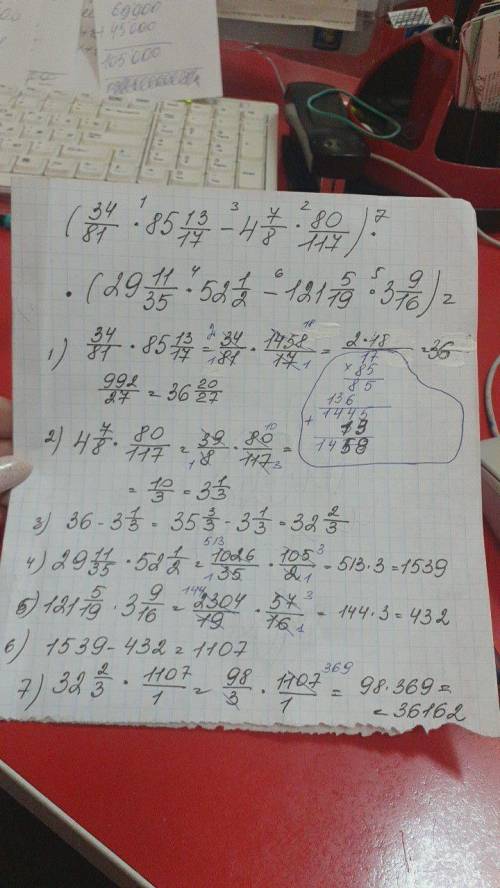 69000
+ 45000
105000
( 34/81 · 85 13/17 − 4 7/8 · 80/117 ) ·
1 3 2 7
· ( 29 11/35 · 52 1/2 − 121 5/19 · 3 9/16 ) =
4 6 5
1) 34/81 · 85 13/17 = 34/81 · 1458/17 = 2·18 = 36
992/27 = 36 20/27
17
× 85
85
136
1445
+ 13
1458
2) 4 7/8 · 80/117 = 39/8 · 80/117 =
= 10/3 = 3 1/3
3) 36 − 3 1/3 = 35 3/3 − 3 1/3 = 32 2/3
4) 29 11/35 · 52 1/2 = 1026/35 · 105/2 = 513 · 3 = 1539
5) 121 5/19 · 3 9/16 = 2304/19 · 57/16 = 144 · 3 = 432
6) 1539 − 432 = 1107
7) 32 2/3 · 1107/1 = 98/3 · 1107/1 = 98 · 369 =
= 36162